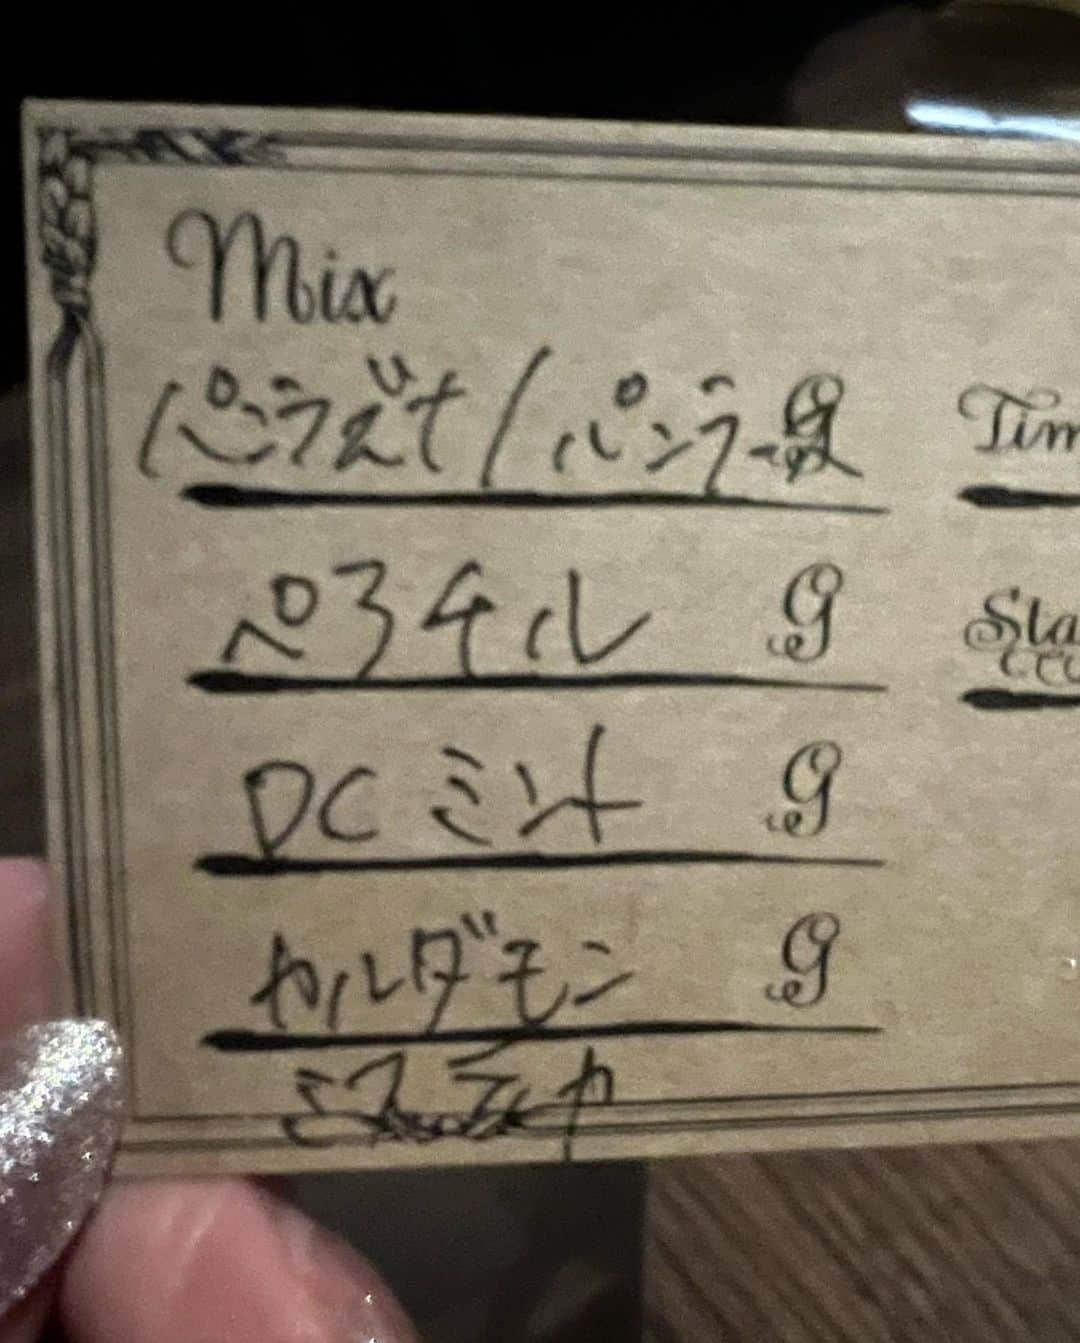 Mix
パンラズナ/パンラズ g
Tim
ペアチル g
Sta
DCミント g
カルダモン g
ミスティカ